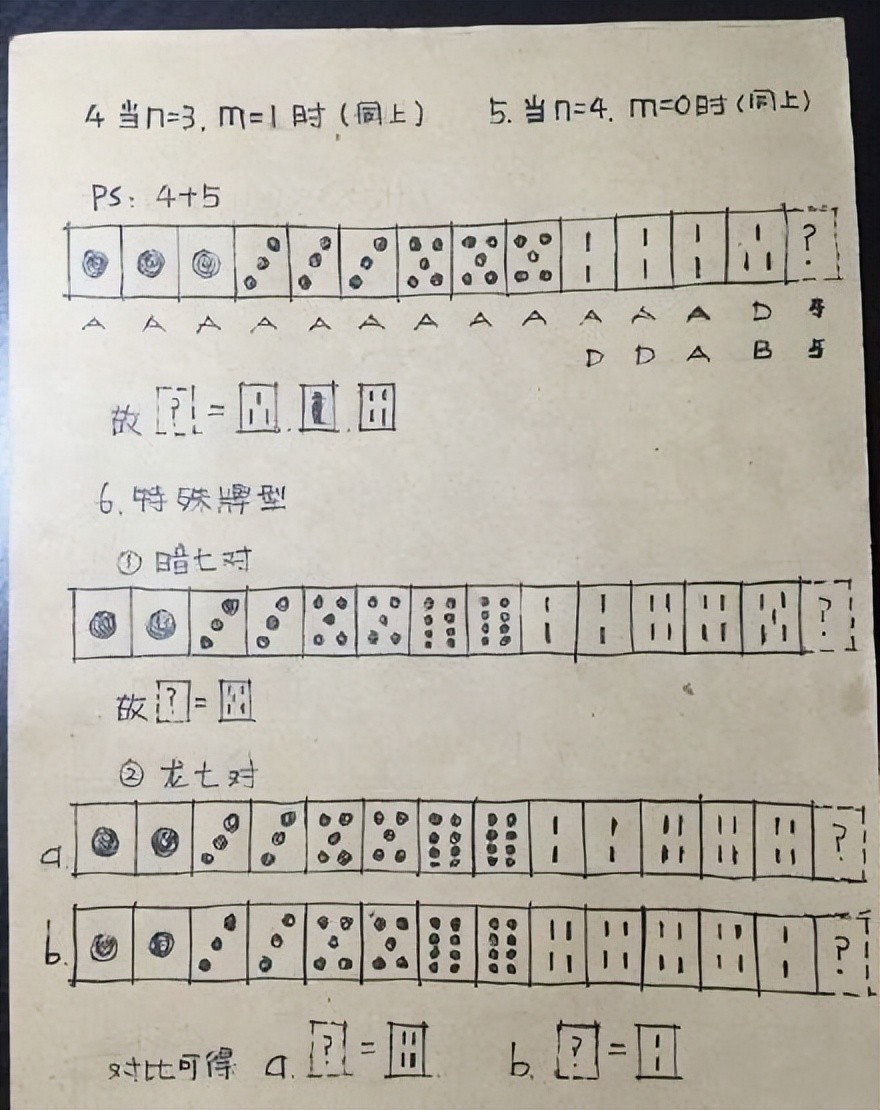 4 当n=3, m=1时(同上) 5. 当n=4. m=0时(同上)
PS: 4+5
?
A A A A A A A A A A A A D 4
D D A B 5
故 ? = . .
6. 特殊牌型
① 暗七对
?
故 ? =
② 龙七对
a. ?
b. ?
对比可得 a. ? = b. ? =